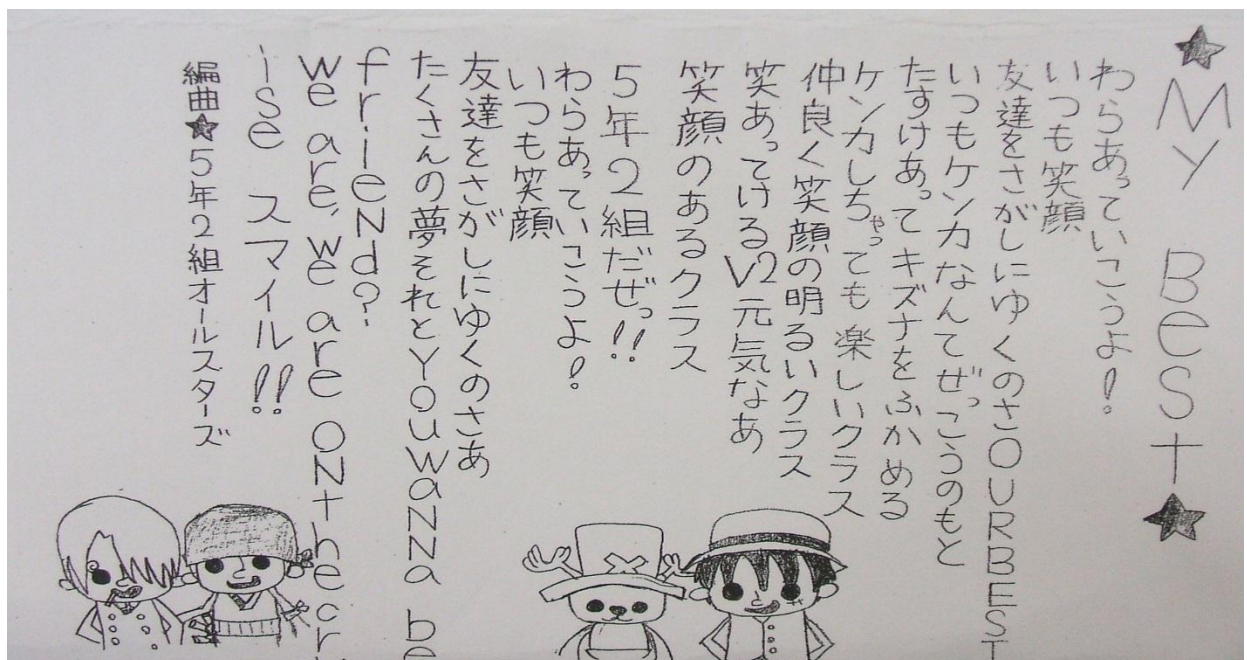 ★My Best★
わらあっていこうよ!
いつも笑顔
友達をさがしにゆくのさOURBEST
いつもケンカなんてぜっこうのもと
たすけあってキズナをふかめる
ケンカしちゃっても楽しいクラス
仲良く笑顔の明るいクラス
笑あってけるV2元気なあ
笑顔のあるクラス
5年2組だぜっ!!
わらあっていこうよ!
いつも笑顔
友達をさがしにゆくのさあ
たくさんの夢それとYouWaNNa be
friend?
We are, we are ONthecr
ise スマイル!!
編曲★5年2組オールスターズ